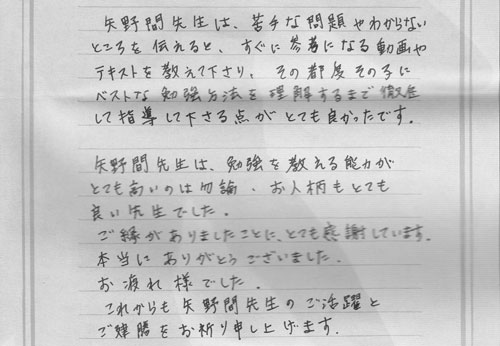 矢野間先生は、苦手な問題やわからない
ところを伝えると、すぐに参考になる動画や
テキストを教えて下さり、その都度その子に
ベストな勉強方法を理解するまで徹底
して指導して下さる点がとても良かったです。
矢野間先生は、勉強を教える能力が
とても高いのは勿論、お人柄もとても
良い先生でした。
ご縁がありましたことに、とても感謝しています。
本当にありがとうございました。
お疲れ様でした。
これからも矢野間先生のご活躍と
ご健勝をお祈り申し上げます。